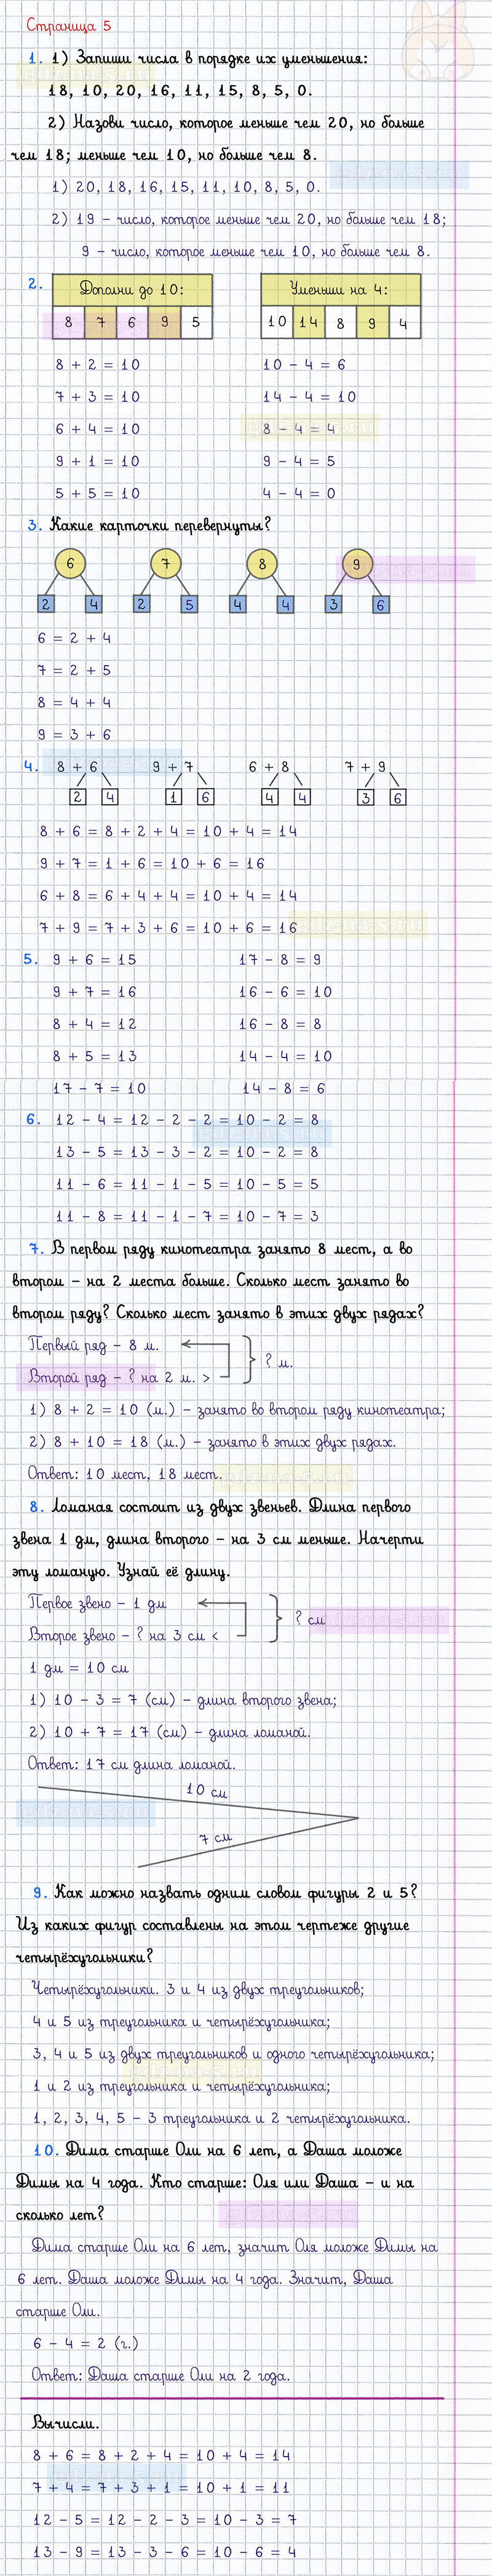 Страница 5
1. 1) Запиши числа в порядке их уменьшения:
18, 10, 20, 16, 11, 15, 8, 5, 0.
2) Назови число, которое меньше чем 20, но больше
чем 18; меньше чем 10, но больше чем 8.
1) 20, 18, 16, 15, 11, 10, 8, 5, 0.
2) 19 – число, которое меньше чем 20, но больше чем 18;
9 – число, которое меньше чем 10, но больше чем 8.
2. Дополни до 10: Уменьши на 4:
8 7 6 9 5 10 14 8 9 4
8 + 2 = 10 10 – 4 = 6
7 + 3 = 10 14 – 4 = 10
6 + 4 = 10 8 – 4 = 4
9 + 1 = 10 9 – 4 = 5
5 + 5 = 10 4 – 4 = 0
3. Какие карточки перевернуты?
6 7 8 9
2 4 2 5 4 4 3 6
6 = 2 + 4
7 = 2 + 5
8 = 4 + 4
9 = 3 + 6
4. 8 + 6 9 + 7 6 + 8 7 + 9
2 4 1 6 4 4 3 6
8 + 6 = 8 + 2 + 4 = 10 + 4 = 14
9 + 7 = 1 + 6 = 10 + 6 = 16
6 + 8 = 6 + 4 + 4 = 10 + 4 = 14
7 + 9 = 7 + 3 + 6 = 10 + 6 = 16
5. 9 + 6 = 15 17 – 8 = 9
9 + 7 = 16 16 – 6 = 10
8 + 4 = 12 16 – 8 = 8
8 + 5 = 13 14 – 4 = 10
17 – 7 = 10 14 – 8 = 6
6. 12 – 4 = 12 – 2 – 2 = 10 – 2 = 8
13 – 5 = 13 – 3 – 2 = 10 – 2 = 8
11 – 6 = 11 – 1 – 5 = 10 – 5 = 5
11 – 8 = 11 – 1 – 7 = 10 – 7 = 3
7. В первом ряду кинотеатра занято 8 мест, а во
втором – на 2 места больше. Сколько мест занято во
втором ряду? Сколько мест занято в этих двух рядах?
Первый ряд – 8 м.
? м.
Второй ряд – ? на 2 м. >
1) 8 + 2 = 10 (м.) – занято во втором ряду кинотеатра;
2) 8 + 10 = 18 (м.) – занято в этих двух рядах.
Ответ: 10 мест, 18 мест.
8. Ломаная состоит из двух звеньев. Длина первого
звена 1 дм, длина второго – на 3 см меньше. Начерти
эту ломаную. Узнай её длину.
Первое звено – 1 дм
? см
Второе звено – ? на 3 см <
1 дм = 10 см
1) 10 – 3 = 7 (см) – длина второго звена;
2) 10 + 7 = 17 (см) – длина ломаной.
Ответ: 17 см длина ломаной.
10 см
7 см
9. Как можно назвать одним словом фигуры 2 и 5?
Из каких фигур составлены на этом чертеже другие
четырёхугольники?
Четырёхугольники. 3 и 4 из двух треугольников;
4 и 5 из треугольника и четырёхугольника;
3, 4 и 5 из двух треугольников и одного четырёхугольника;
1 и 2 из треугольника и четырёхугольника;
1, 2, 3, 4, 5 – 3 треугольника и 2 четырёхугольника.
10. Дима старше Оли на 6 лет, а Даша моложе
Димы на 4 года. Кто старше: Оля или Даша – и на
сколько лет?
Дима старше Оли на 6 лет, значит Оля моложе Димы на
6 лет. Даша моложе Димы на 4 года. Значит, Даша
старше Оли.
6 – 4 = 2 (г.)
Ответ: Даша старше Оли на 2 года.
Вычисли.
8 + 6 = 8 + 2 + 4 = 10 + 4 = 14
7 + 4 = 7 + 3 + 1 = 10 + 1 = 11
12 – 5 = 12 – 2 – 3 = 10 – 3 = 7
13 – 9 = 13 – 3 – 6 = 10 – 6 = 4